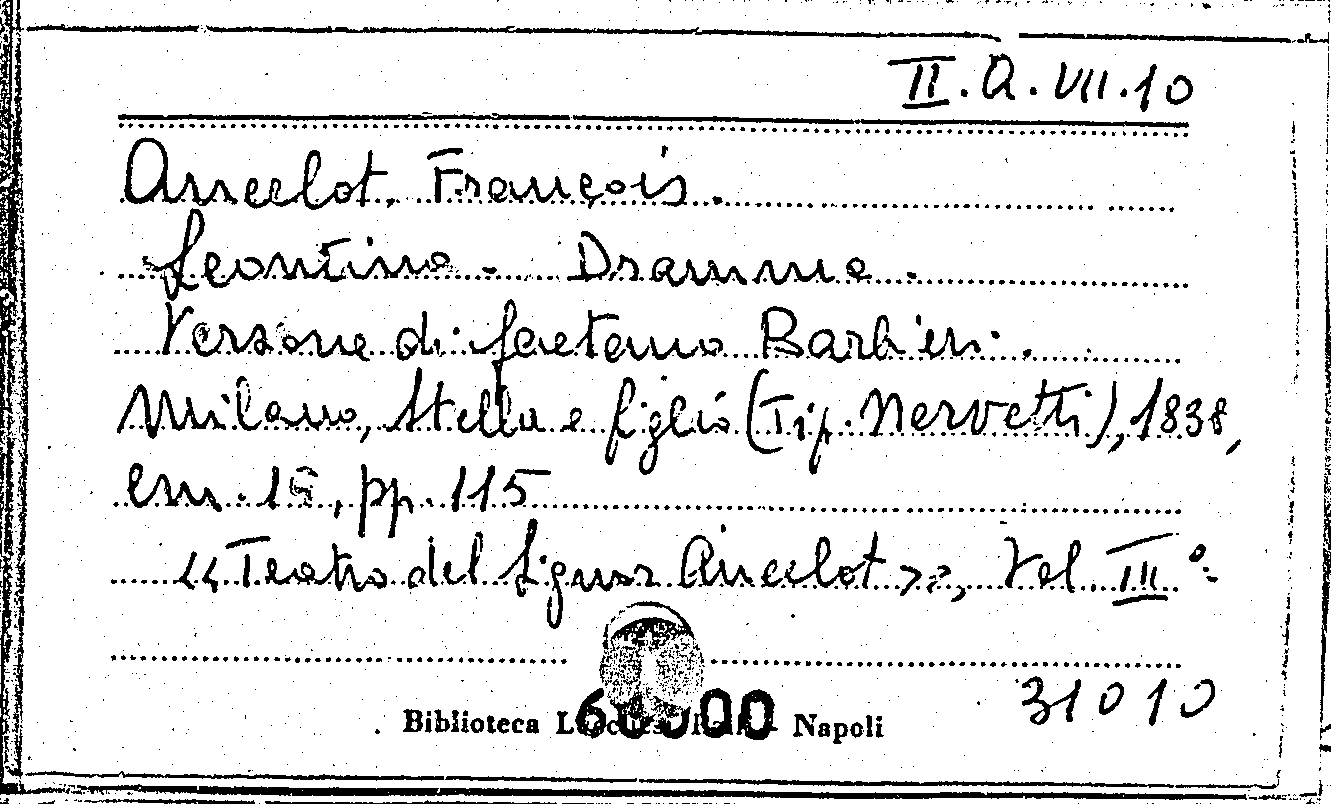 II.A.VII.10
Ancelot, François.
Leontina - Dramma.
Versione di Gaetano Barbieri.
Milano, Stella e figlio (Tip. Nervetti), 1838,
cm. 16, pp. 115
<<Teatro del Signor Ancelot>>, Vol. III°
31010
Biblioteca - Napoli